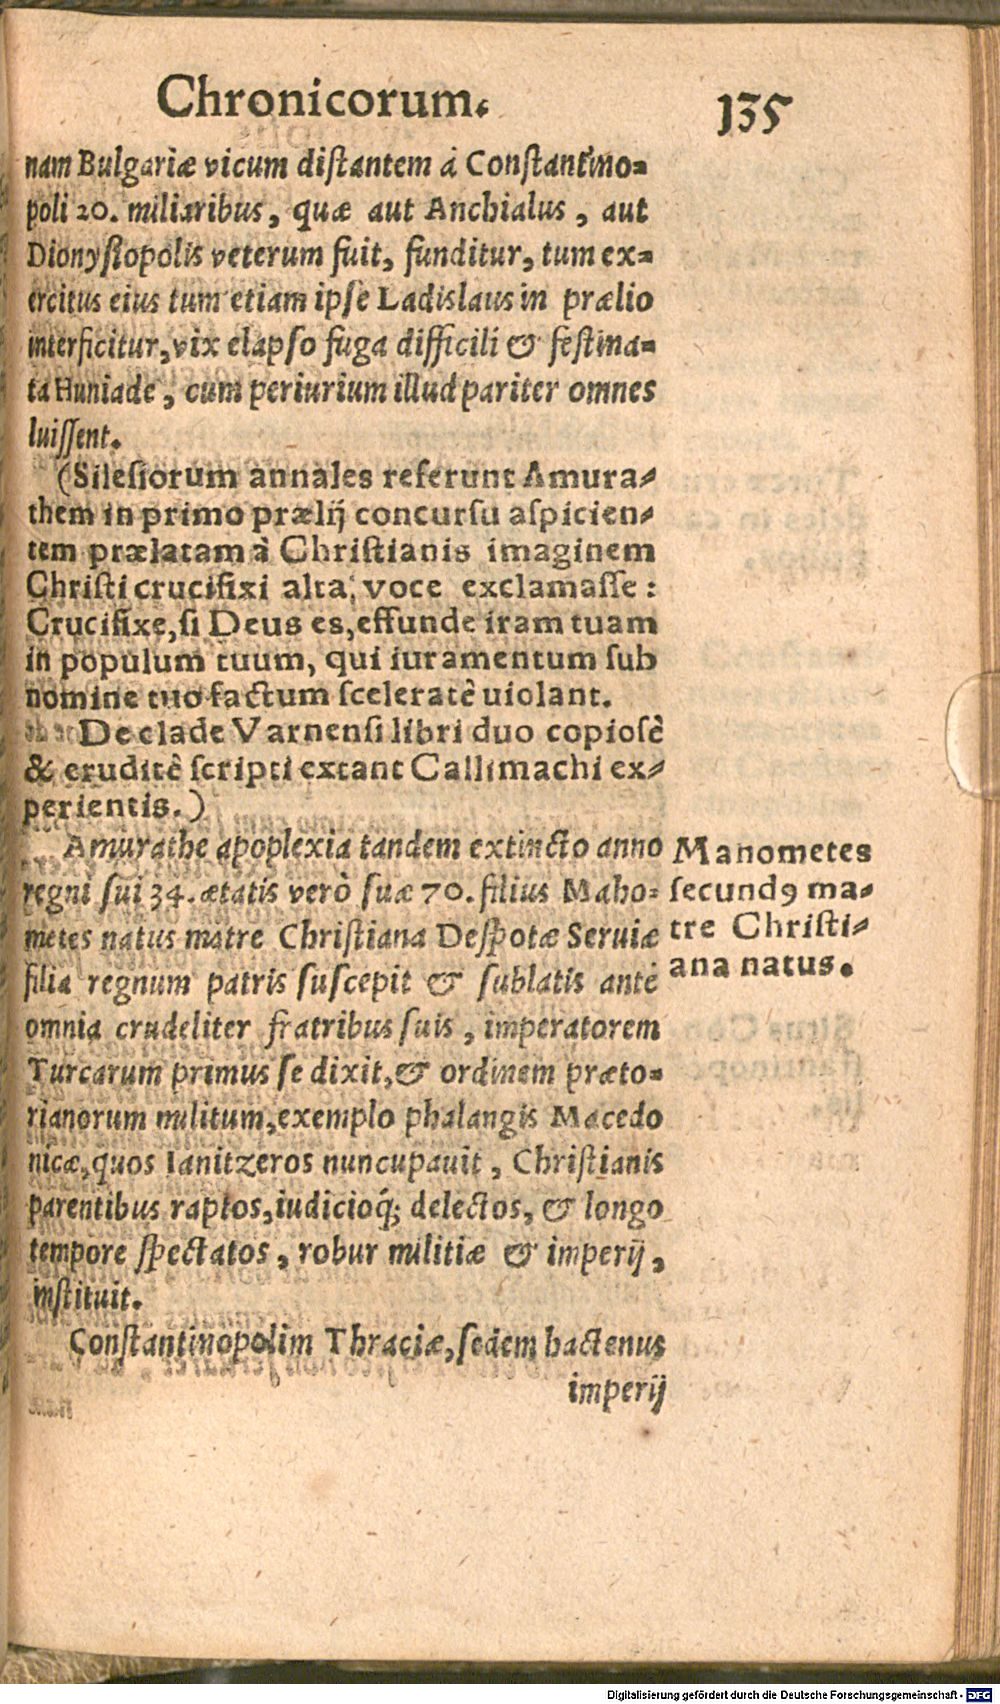 Chronicorum.
135
nam Bulgariæ vicum distantem á Constantino-
poli 20. miliaribus, quæ aut Anchialus, aut
Dionysiopolis veterum fuit, funditur, tum ex-
ercitus eius tum etiam ipse Ladislaus in prælio
interficitur, vix elapso fuga difficili & festina-
ta Huniade, cum periurium illud pariter omnes
luissent.
(Silesiorum annales referunt Amura-
them in primo prælij concursu aspicien-
tem prælatam à Christianis imaginem
Christi crucifixi alta, voce exclamasse:
Crucifixe, si Deus es, effunde iram tuam
in populum tuum, qui iuramentum sub
nomine tuo factum sceleratè uiolant.
De clade Varnensi libri duo copiosè
& eruditè scripti extant Callimachi ex-
perientis.)
Amurathe apoplexia tandem extincto anno
regni sui 34. ætatis verò suæ 70. filius Maho-
metes natus matre Christiana Despotæ Seruiæ
filia regnum patris suscepit & sublatis ante
omnia crudeliter fratribus suis, imperatorem
Turcarum primus se dixit, & ordinem præto-
rianorum militum, exemplo phalangis Macedo
nicæ, quos Ianitzeros nuncupauit, Christianis
parentibus raptos, iudicioq́; delectos, & longo
tempore spectatos, robur militiæ & imperij,
instituit.
Constantinopolim Thraciæ, sedem hactenus
imperij
Manometes
secundꝰ ma-
tre Christi-
ana natus.
Digitalisierung gefördert durch die Deutsche Forschungsgemeinschaft - DFG